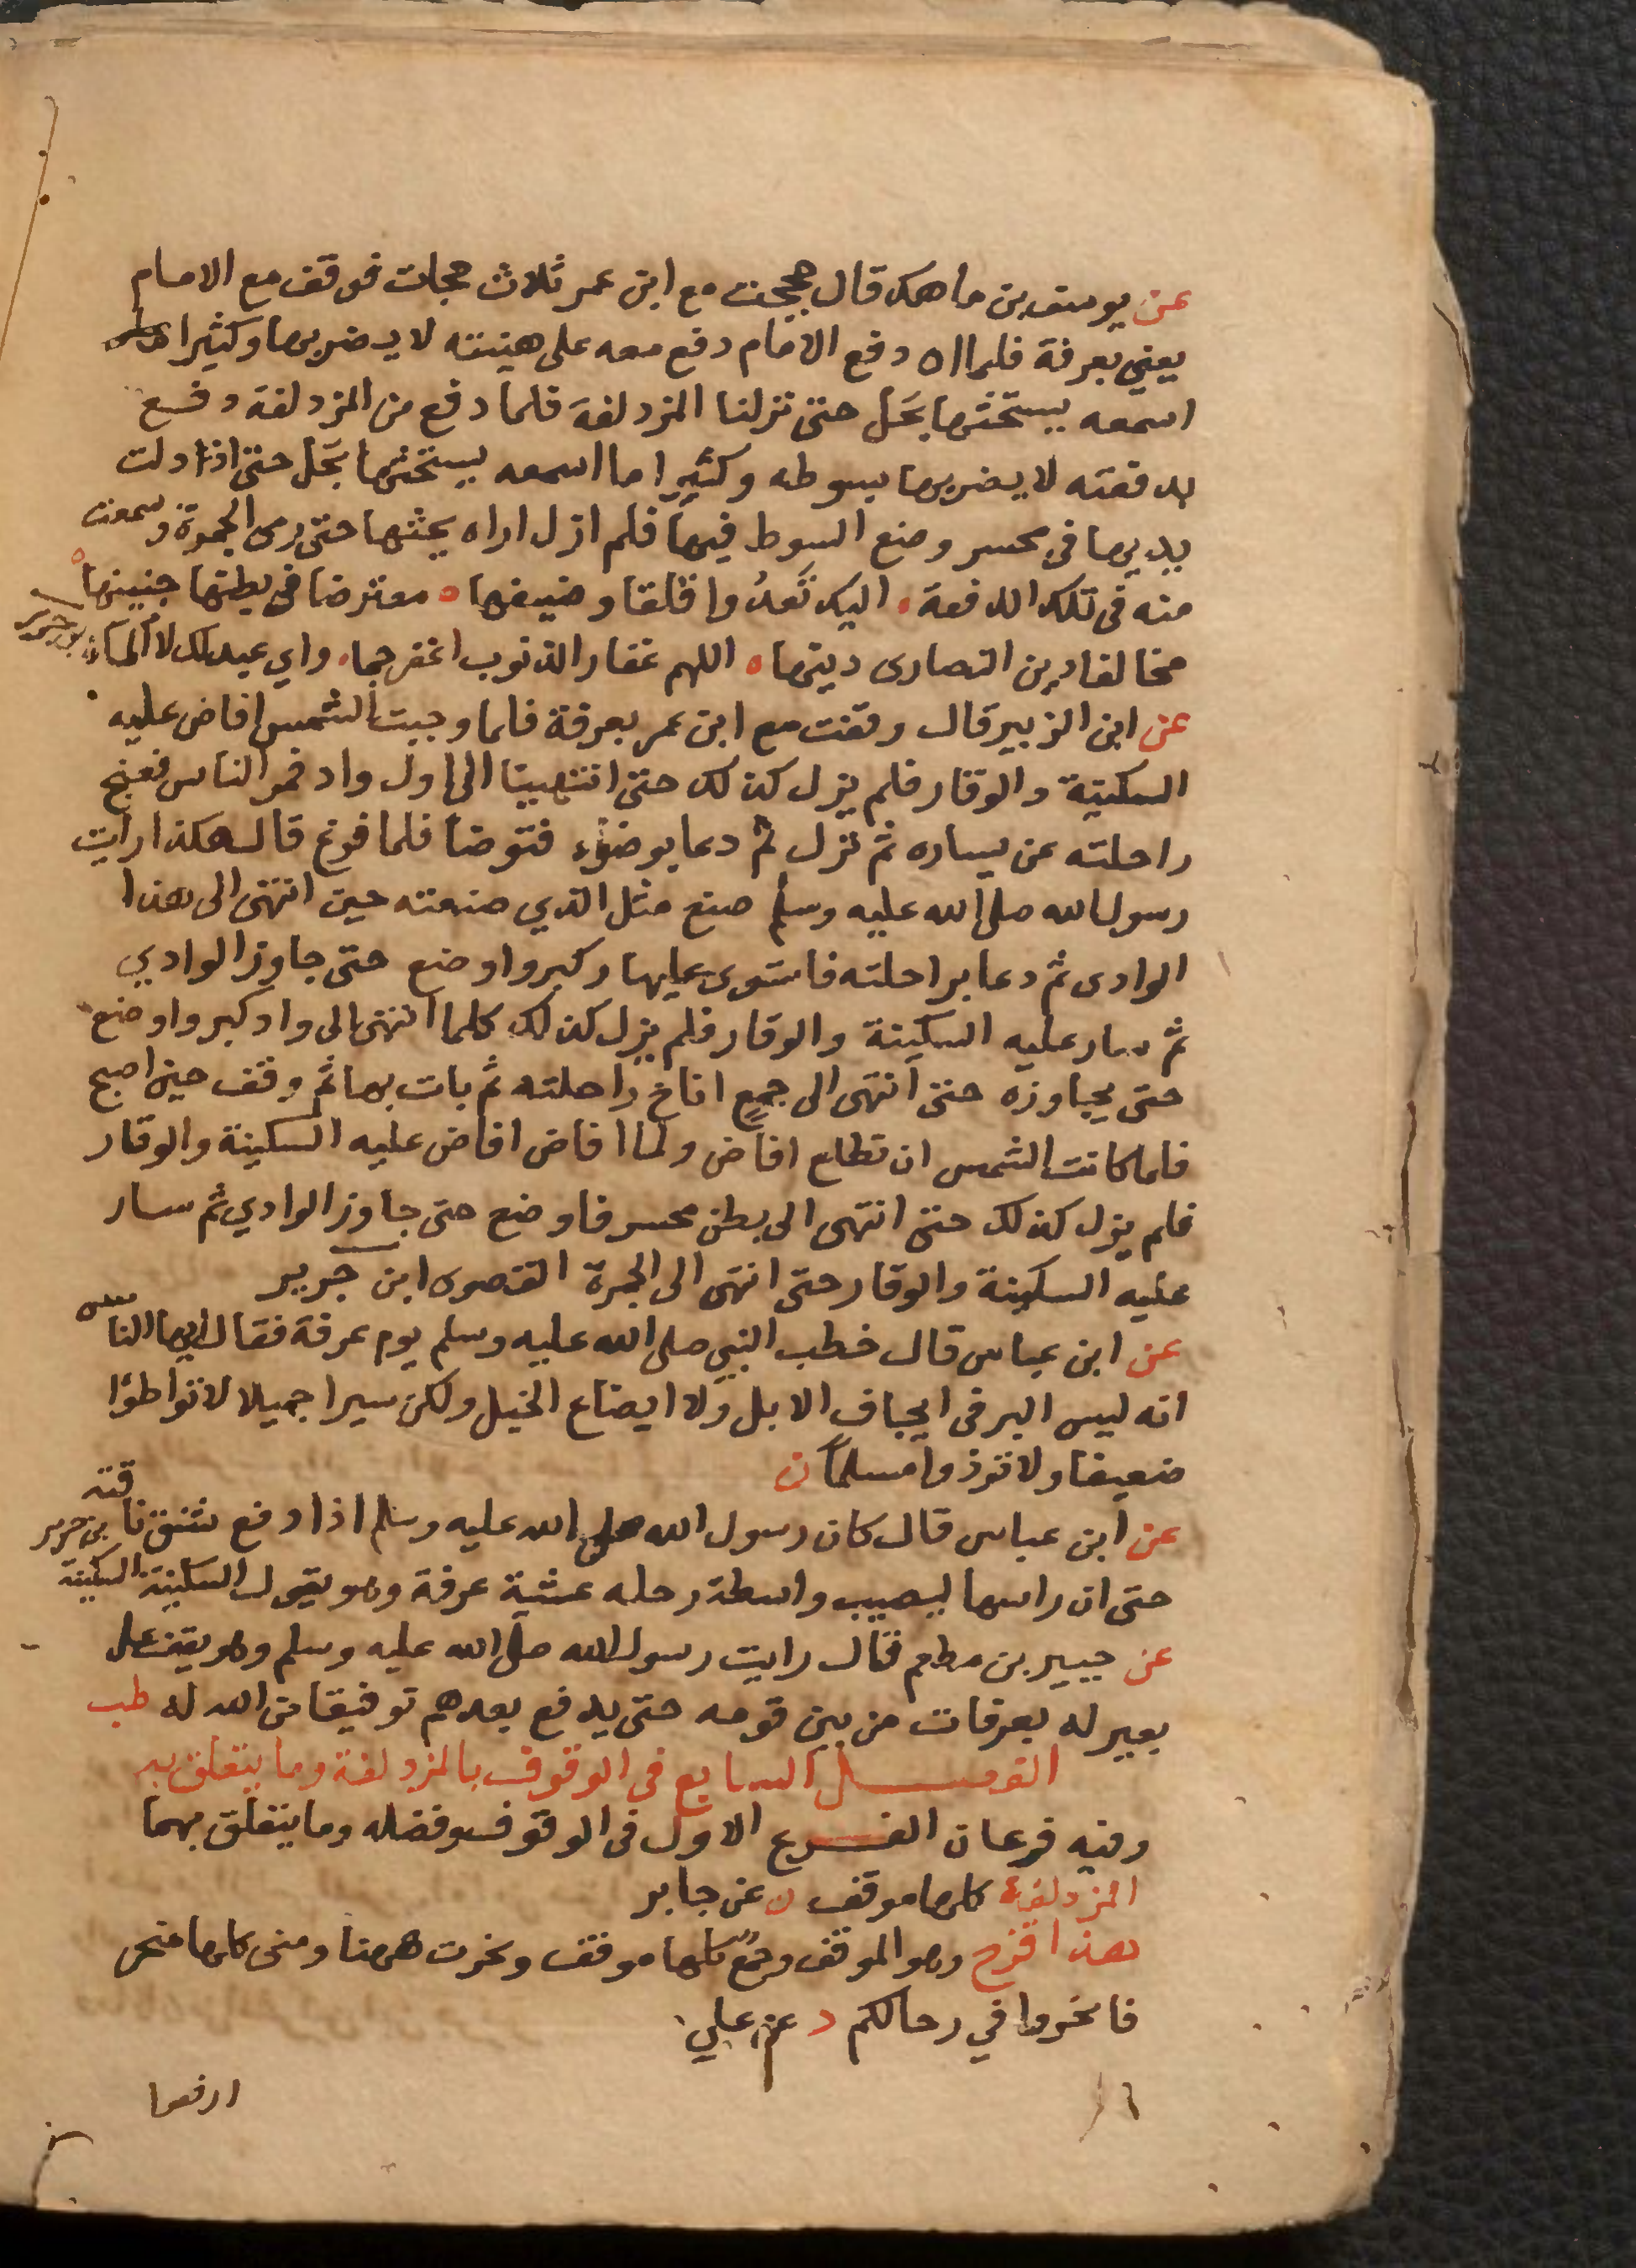 عن يوسف بن ماهك قال حججت مع ابن عمر ثلاث حجات فوقف مع الامام
يعني بعرفة فلما دفع الامام دفع معه على هينته لا يضربها وكثيرا ما
اسمعه يستحثها بحل حتى نزلنا المزدلفة فلما دفع من المزدلفة دفع
بدفعته لا يضربها بسوطه وكثيرا ما اسمعه يستحثها بحل حتى اذا دلت
بديها في محسر وضع السوط فيها فلم ازل اراه يحثها حتى رمى الجمرة وسمعت
منه في تلك الدفعة اليك تعدُوا قلقا وضينها معترضا في بطنها جنينها
مخالفا دين النصارى دينها اللهم غفار الذنوب اغفر جما واي عبد لك لا ألما ابن جرير
عن ابن الزبير قال وقفت مع ابن عمر بعرفة فلما وجبت الشمس افاض عليه
السكينة والوقار فلم يزل كذلك حتى انتهينا الى اول واد فمر الناس فعنج
راحلته عن يساره ثم نزل ثم دعا بوضوء فتوضا فلما فرغ قال هكذا رايت
رسول الله صلى الله عليه وسلم صنع مثل الذي صنعته حين انتهى الى هذا
الوادى ثم دعا براحلته فاستوى عليها وكبر واوضع حتى جاوز الوادي
ثم سار عليه السكينة والوقار فلم يزل كذلك كلما انتهى الى واد كبر واوضع
حتى يجاوزه حتى انتهى الى جمع اناخ راحلته ثم بات بها ثم وقف حين اصبح
فلما كانت الشمس ان تطلع افاض ولما افاض افاض عليه السكينة والوقار
فلم يزل كذلك حتى انتهى الى بطن محسر فاوضع حتى جاوز الوادي ثم سار
عليه السكينة والوقار حتى انتهى الى الجمرة القصوى ابن جرير
عن ابن عباس قال خطب النبي صلى الله عليه وسلم يوم عرفة فقال ايها الناس
انه ليس البر في ايجاف الابل ولا ايضاع الخيل ولكن سيرا جميلا لا تواطؤا
ضعيفا ولا توذوا مسلما ن
عن ابن عباس قال كان رسول الله صلى الله عليه وسلم اذا دفع شنق ناقته ابن جرير
حتى ان راسها ليصيب واسطة رحله عشية عرفة وهو يقول السكينة السكينة
عن جبير بن مطعم قال رايت رسول الله صلى الله عليه وسلم وهو يقف على
بعير له بعرفات من بين قومه حتى يدفع بعدهم توفيقا من الله له طب
الفصل السابع في الوقوف بالمزدلفة وما يتعلق به
وفيه فرعان الفرع الاول في الوقوف وفضله وما يتعلق بهما
المزدلفة كلها موقف ن عن جابر
هذا قزح وهو الموقف وجمع كلها موقف ونحرت ههنا ومنى كلها منحر
فانحروا في رحالكم د عن علي
ارفعوا